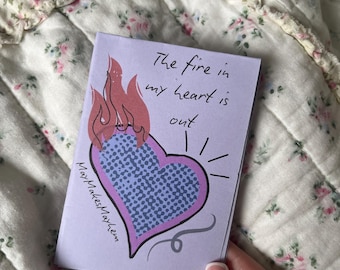 The fire in
my heart is
out
MayMakesMayhem